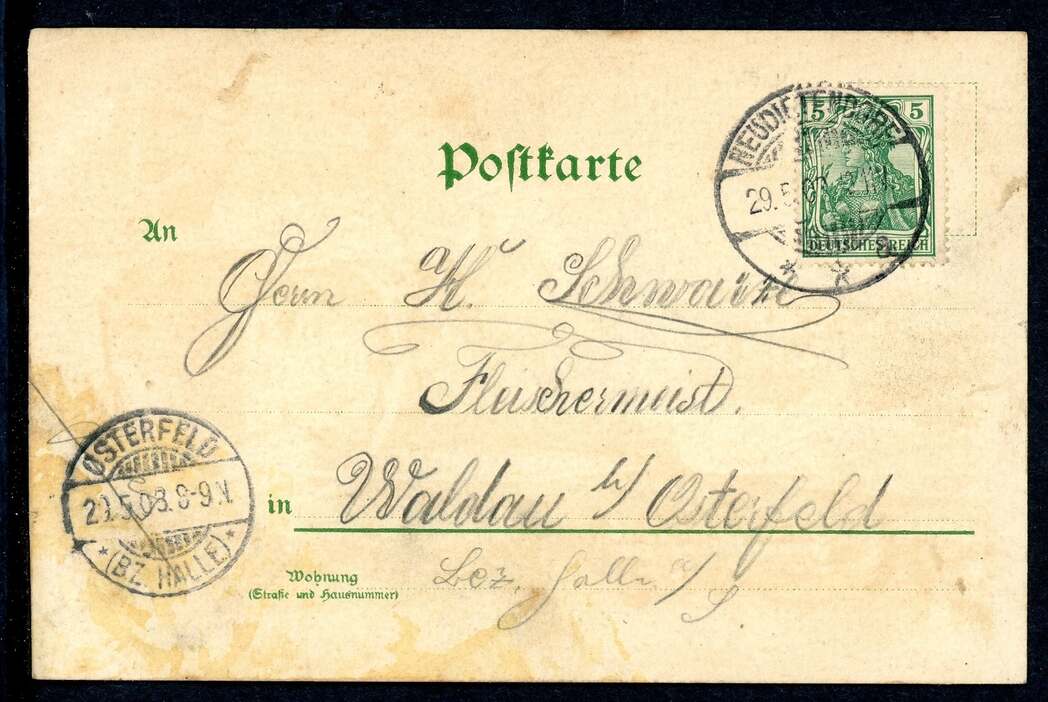 Postkarte
5 5
DEUTSCHES REICH
NEUDIETENDORF
29.5.03
An
Herrn H. Schwarze
Fleischermeist.
in Waldau b/ Osterfeld
Bez. Halle a/S
Wohnung
(Straße und Hausnummer)
OSTERFELD
29.5.03.8-9N.
* (BZ. HALLE) *